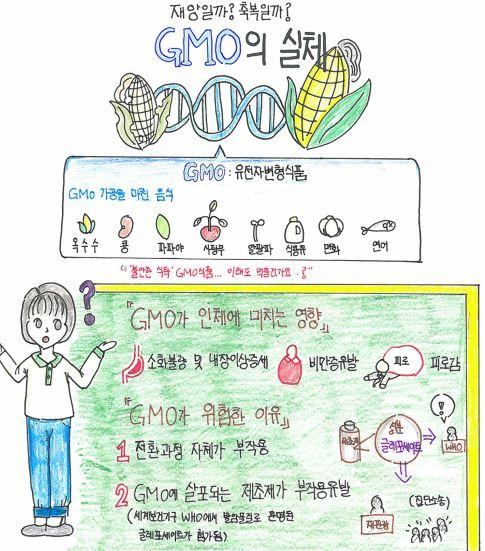 재앙일까? 축복일까?
GMO의 실체
GMO : 유전자변형식품
GMO 가공을 마친 음식
옥수수 콩 파파야 사탕무 알팔파 식용유 면화 연어
"'불안한 식탁' GMO식품... 이래도 먹을건가요.?"
?
『GMO가 인체에 미치는 영향』
소화불량 및 내장이상증세 비만증유발 피로 피로감
『GMO가 위험한 이유』
1 전환과정 자체가 부작용
제초제 성분 글레포세이트 ! WHO
2 GMO에 살포되는 제초제가 부작용유발
(세계보건기구 WHO에서 발암물질로 판명된
글레포세이트가 첨가됨)
(집단소송)